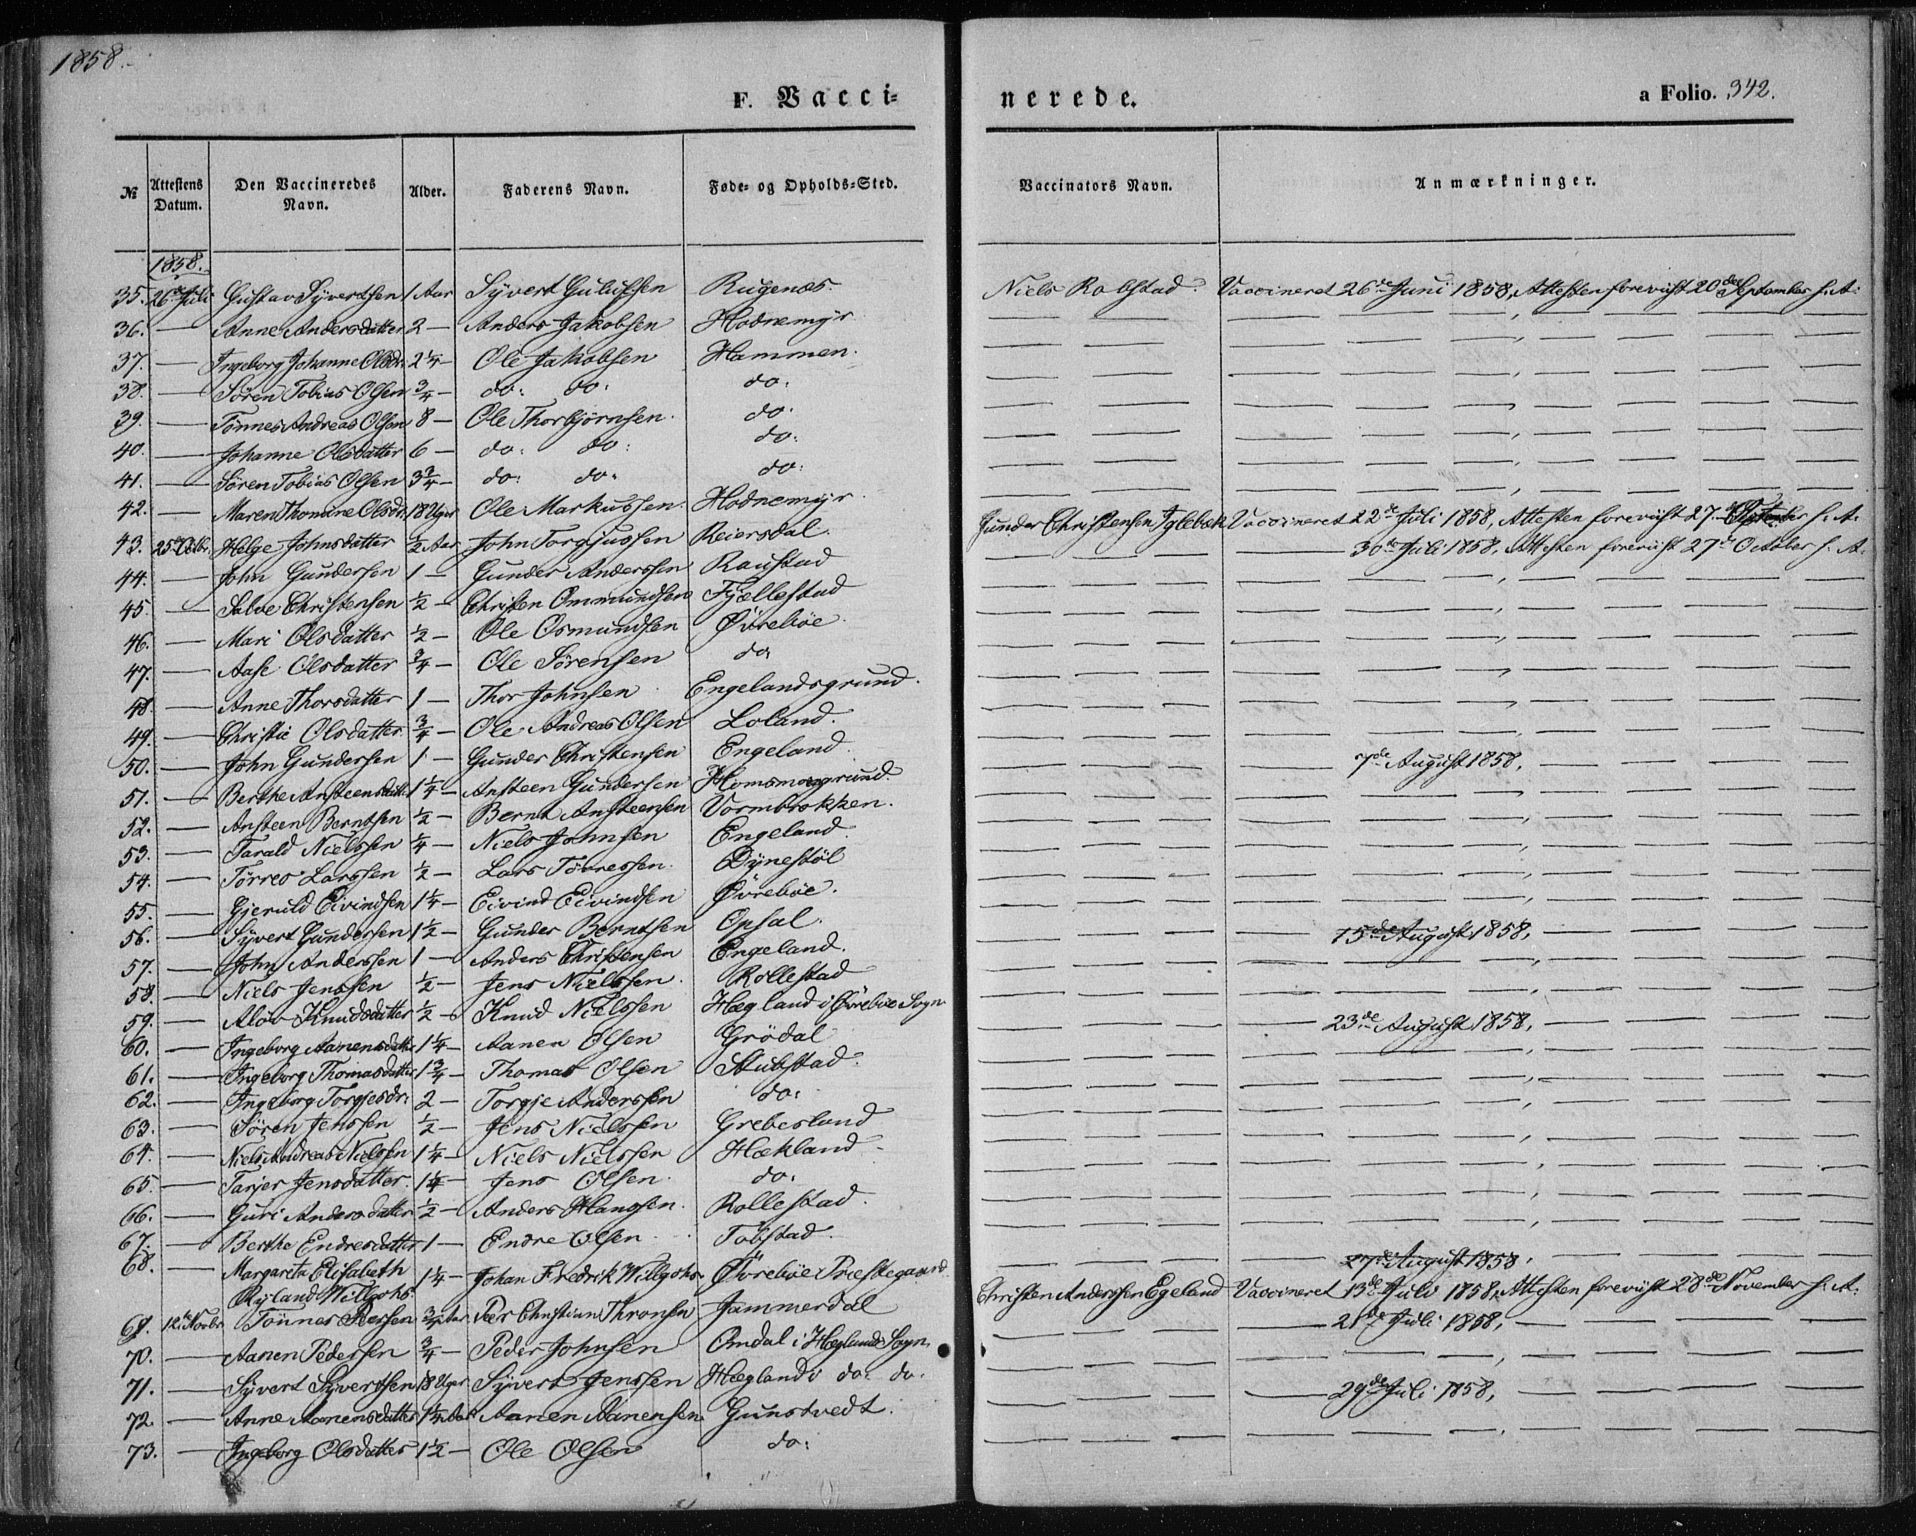 1858.
F. Vacci=
nerede.
a Folio. 342.
№ Attestens Datum. Den Vaccineredes Navn. Alder. Faderens Navn. Føde- og Opholds-Sted. Vaccinators Navn. Anmærkninger.
1858.
35. 26de Juli Gustav Syvertsen 1 Aar Syvert Gulufsen Rugenæs. Niels Robstad. Vaccineret 26de Juni 1858, Attesten foreviist 20de September s. A.
36. — Anne Andersdatter 2 — Anders Jakobsen Hodnemyr — — — — — , — — — —
37. — Ingeborg Johanne Olsdr. 2 1/4 — Ole Jakobsen Hammen. — — — — — , — — — —
38. — Søren Tobias Olsen 3/4 — do: do: do: — — — — — , — — — —
39. — Tønnes Andreas Olsen 8 — Ole Thorbjørnsen. do. — — — — — , — — — —
40. — Johanne Olsdatter 6 — do: do: do: — — — — — , — — — —
41. — Søren Tobias Olsen 3 3/4 — do: do. do: — — — — — , — — — —
42. — Maren Thomine Olsdr. 18 Uger Ole Markussen. Hodnemyr. — — — — — , — — — —
43. 25de Octbr. Helge Johnsdatter 1/2 Aar John Torgjussen Reiersdal. Gunder Christensen Iglebæk Vaccineret 22de Juli 1858, Attesten foreviist 27de s. A.
44. — John Gundersen 1 — Gunder Anderssen Raustad — — — — 30te Juli 1858, Attesten foreviist 27de October s. A.
45. — Salve Christensen 1/2 — Christen Ommundsen Fjællestad — — — — — , — — — —
46. — Mari Olsdatter 1/2 — Ole Osmundsen Øvrebøe. — — — — — , — — — —
47. — Aase Olsdatter 3/4 — Ole Sørensen do, — — — — — , — — — —
48 — Anne Thorsdatter 1 — Thor Johnsen Engelandsgrund. — — — — — , — — — —
49. — Christie Olsdatter. 3/4 — Ole Andreas Olsen Loland. — — — — — , — — — —
50. — John Gundersen 1 — Gunder Christensen Engeland. — — — — — , — — — —
51. — Berthe Ansteensdatt. 1 1/4 — Ansteen Gundersen Homsmoegrund — — — — 7de August 1858, — — — —
52. — Ansteen Berntsen 1/2 — Bernt Ansteensen Vormbrokken. — — — — — , — — — —
53. — Tarald Nielssen 1/4 — Niels Johnsen Engeland. — — — — — , — — — —
54. — Tørres Larssen 1/2 — Lars Tørressen. Dynestøl — — — — — , — — — —
55. — Gjeruld Eivindsen 1 1/4 — Eivind Eivindsen Øvrebøe. — — — — — , — — — —
56. — Syvert Gundersen 1 1/2 — Gunder Berntsen Opsal. — — — — — , — — — —
57. — John Anderssen 1 — Anders Christensen Engeland. — — — — 15de August 1858, — — — —
58. — Niels Jenssen 1/2 — Jens Nielssen. Rollestad — — — — — , — — — —
59. — Alov Knudsdatter 1/2 — Knud Nielssen Hægland i Øvrebøe Sogn — — — — — , — — — —
60. — Ingeborg Aanensdatter 1 1/4 — Aanen Olsen Grödal — — — — 23de August 1858, — — — —
61. — Ingeborg Thomasdatter 1 3/4 — Thomas Olsen Stubstad. — — — — — , — — — —
62. — Ingeborg Torgjesdr. 2 — Torgje Anderssen do: — — — — — , — — — —
63. — Søren Jenssen 1/2 — Jens Nielssen Grebesland — — — — — , — — — —
64. — Niels Andreas Nielsen 1 1/4 — Niels Nielssen Hækland — — — — — — , — — — —
65. — Tarjer Jensdatter. 1 1/4 — Jens Olsen. do. — — — — — , — — — —
66. — Guri Andersdatter 1/2 — Anders Hansen. Rollestad. — — — — — , — — — —
67. — Berthe Endresdatter 1 — Endre Olsen. Tobstad. — — — — — , — — — —
68. — Margareta Elisabeth
Ryland Willgohs 1 1/4 — Johan Fredrik Willgohs. Øvrebøe Præstegaard — — — — 27de August 1858. — — — —
69. 12te Novbr. Tönnes Persen 3/4 Aar Per Christian Thronsen Jammerdal Christen Anderssen Egeland Vaccineret 13de Juli 1858, Attesten foreviist 28de November s. A.
70. — Aanen Pedersen 3/4 — Peder Johnsen Omdal i Heglands Sogn, — — — — 21de Juli 1858, — — — —
71. — Syvert Syvertsen 18 Uger Syvert Jenssen Hæglands do. do. — — — — — , — — — —
72. — Anne Aanensdatter 1 1/4 Aar Aanen Aanensen. Gunstvedt. — — — — 29de Juli 1858, — — — —
73. — Ingeborg Olsdatter 1 1/2 — Ole Olsen do: — — — — — , — — — —